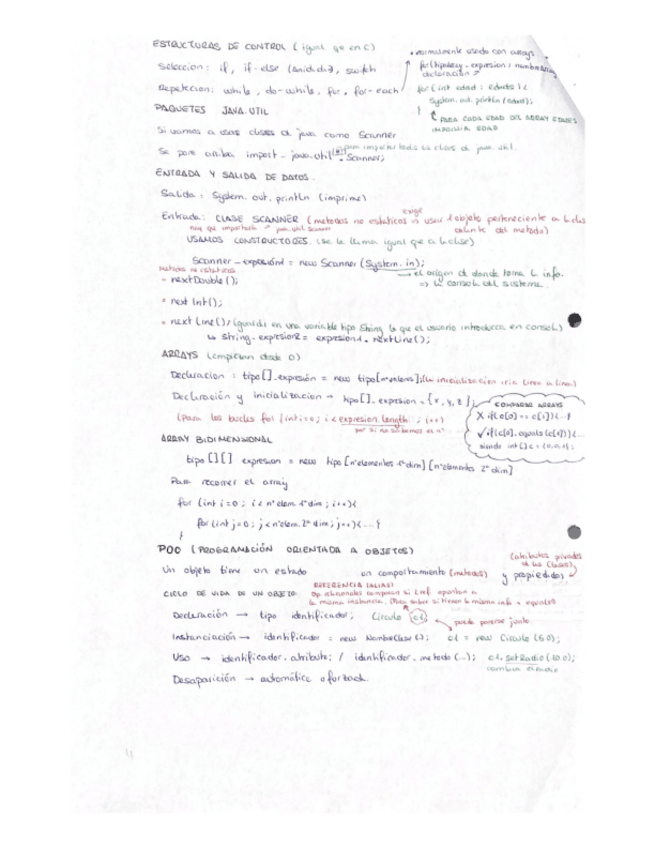 ESTRUCTURAS DE CONTROL (igual que en C)
• normalmente usado con arrays
for (tipoArray expresion : nombreArray)
declaración
Selección: if, if-else (anidada), switch
Repetición: while, do-while, for, for-each
for (int edad : edades) {
System.out.println(edad);
}
PARA CADA EDAD DEL ARRAY EDADES
IMPRIMIR EDAD
PAQUETES JAVA.UTIL
Si vamos a usar clases de java como Scanner
Se pone arriba import java.util (*) Scanner;
para importar todas las clases de java.util.
ENTRADA Y SALIDA DE DATOS.
Salida: System.out.println (imprime)
Entrada: CLASE SCANNER (metodos no estaticos → usar 1 objeto perteneciente a la clase
exige
delante del metodo)
hay que importarla java.util.scanner
USAMOS CONSTRUCTORES. (se le llama igual que a la clase)
Scanner expresión1 = new Scanner (System.in);
→ el origen de donde toma la info.
⇒ la consola del sistema
Metodos no estaticos
• nextDouble();
• nextInt();
• nextLine() / (guarda en una variable tipo String lo que el usuario introduzca en consola)
↳ String expresion2 = expresion1.nextLine();
ARRAYS (empiezan desde 0)
Declaracion: tipo[] expresión = new tipo[nºvalores]; (la inicialización iría línea a línea)
Declaración y inicialización → tipo[] expresión = {x, y, z};
(Para los bucles for (int i=0; i < expresion.length; i++)
por si no sabemos el nº
COMPARAR ARRAYS
X if(c[0] == c[1]){...}
✓ if(c[0].equals(c[1])){...
siendo int[] c = {0,0,1};
ARRAY BIDIMENSIONAL
tipo [][] expresion = new tipo [nºelementos 1ª dim] [nºelementos 2ª dim]
Para recorrer el array
for (int i=0; i < nºelem. 1ª dim; i++){
for (int j=0; j < nºelem. 2ª dim; j++){...}
}
POO (PROGRAMACIÓN ORIENTADA A OBJETOS)
(atributos privados
de las clases)
Un objeto tiene un estado un comportamiento (metodos) y propiedades
REFERENCIA (ALIAS)
CICLO DE VIDA DE UN OBJETO
Op. relacionales comparan si 2 ref. apuntan a
la misma instancia. (Para saber si tienen la misma info → equals)
Declaración → tipo identificador; Circulo c1;
puede ponerse junto
Instanciación → identificador = new NombreClase(); c1 = new Circulo(5.0);
Uso → identificador.atributo; / identificador.metodo(...); c1.setRadio(10.0);
cambia el radio
Desaparición → automática o forzada.
4